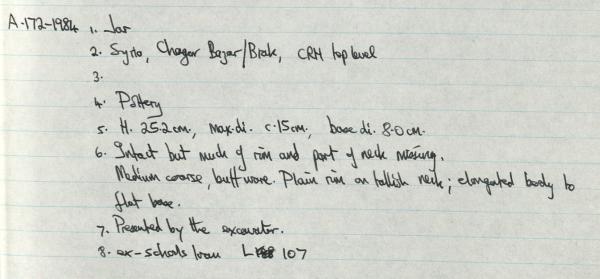 A.172-1984 1. Jar
2. Syria, Chagar Bazar/Brak, CRM top level
3.
4. Pottery
5. H. 25.2cm, max.di. c.15cm, base di. 8.0cm.
6. Intact but much of rim and part of neck missing.
Medium coarse, buff ware. Plain rim on tallish neck; elongated body to
flat base.
7. Presented by the excavator.
8. ex-schools loan L 107